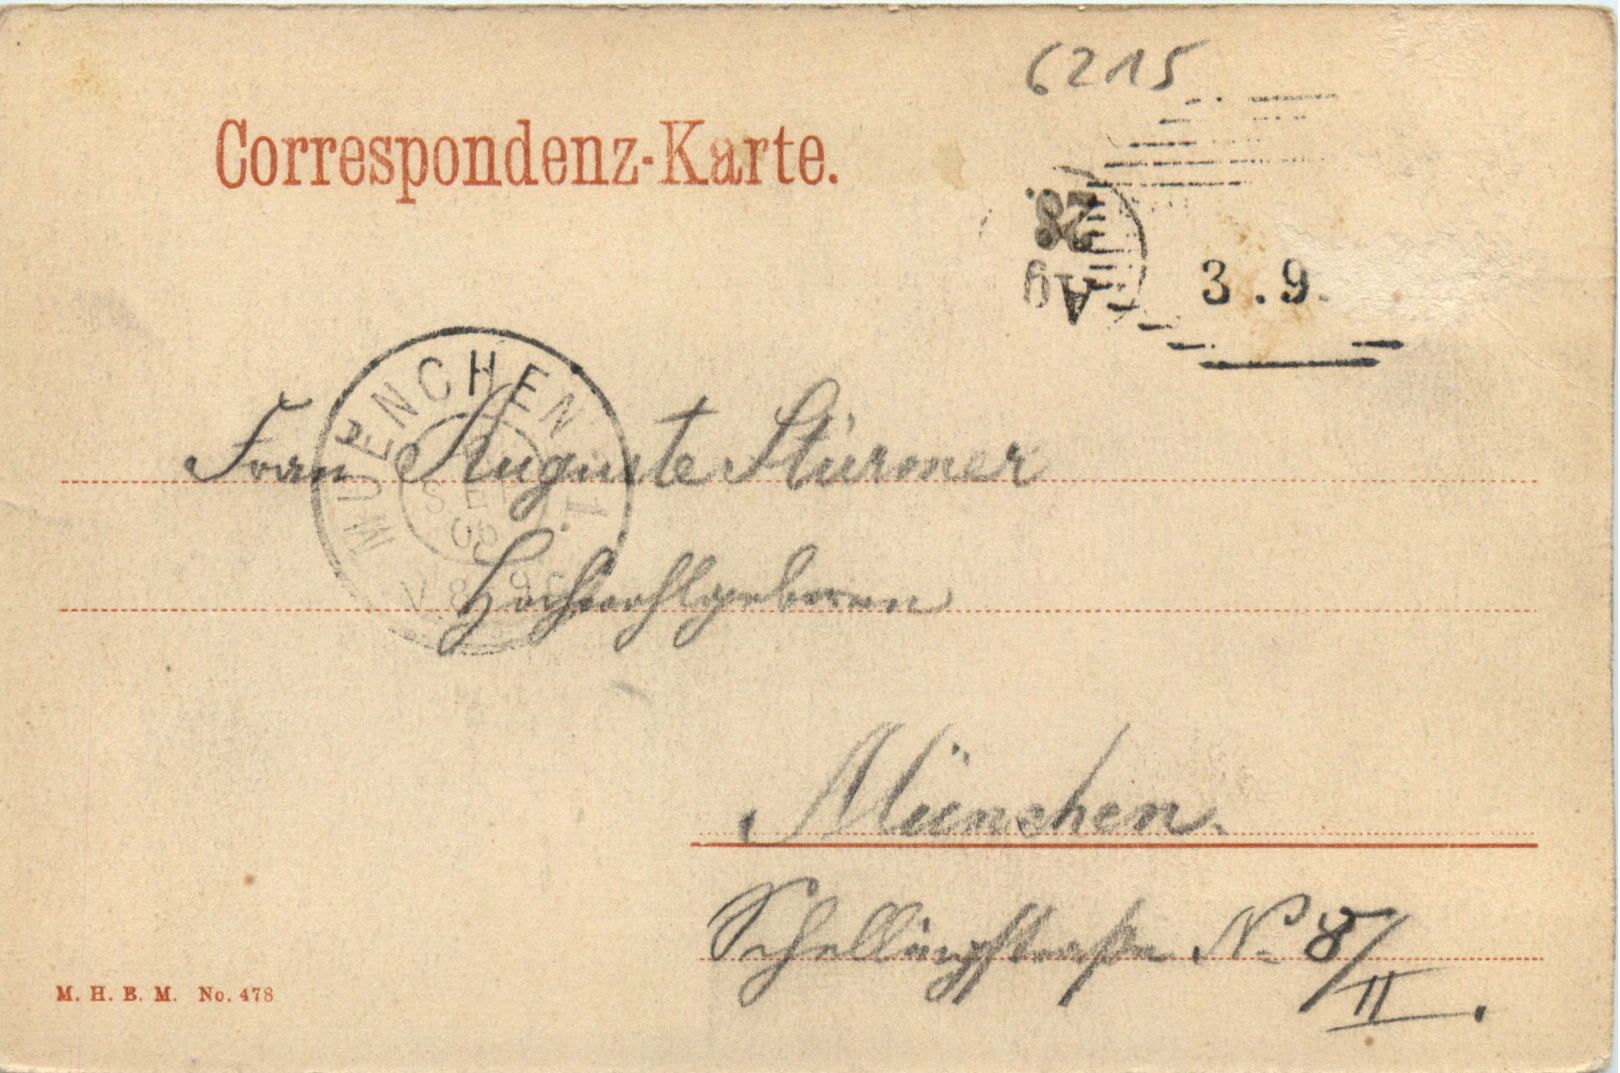 6215
Correspondenz-Karte.
28.
3.9.
MUENCHEN 1
SEP
Frau Auguste Stürmer
Hochwohlgeboren
München.
Schellingstraße No 8/II.
M. H. B. M. No. 478